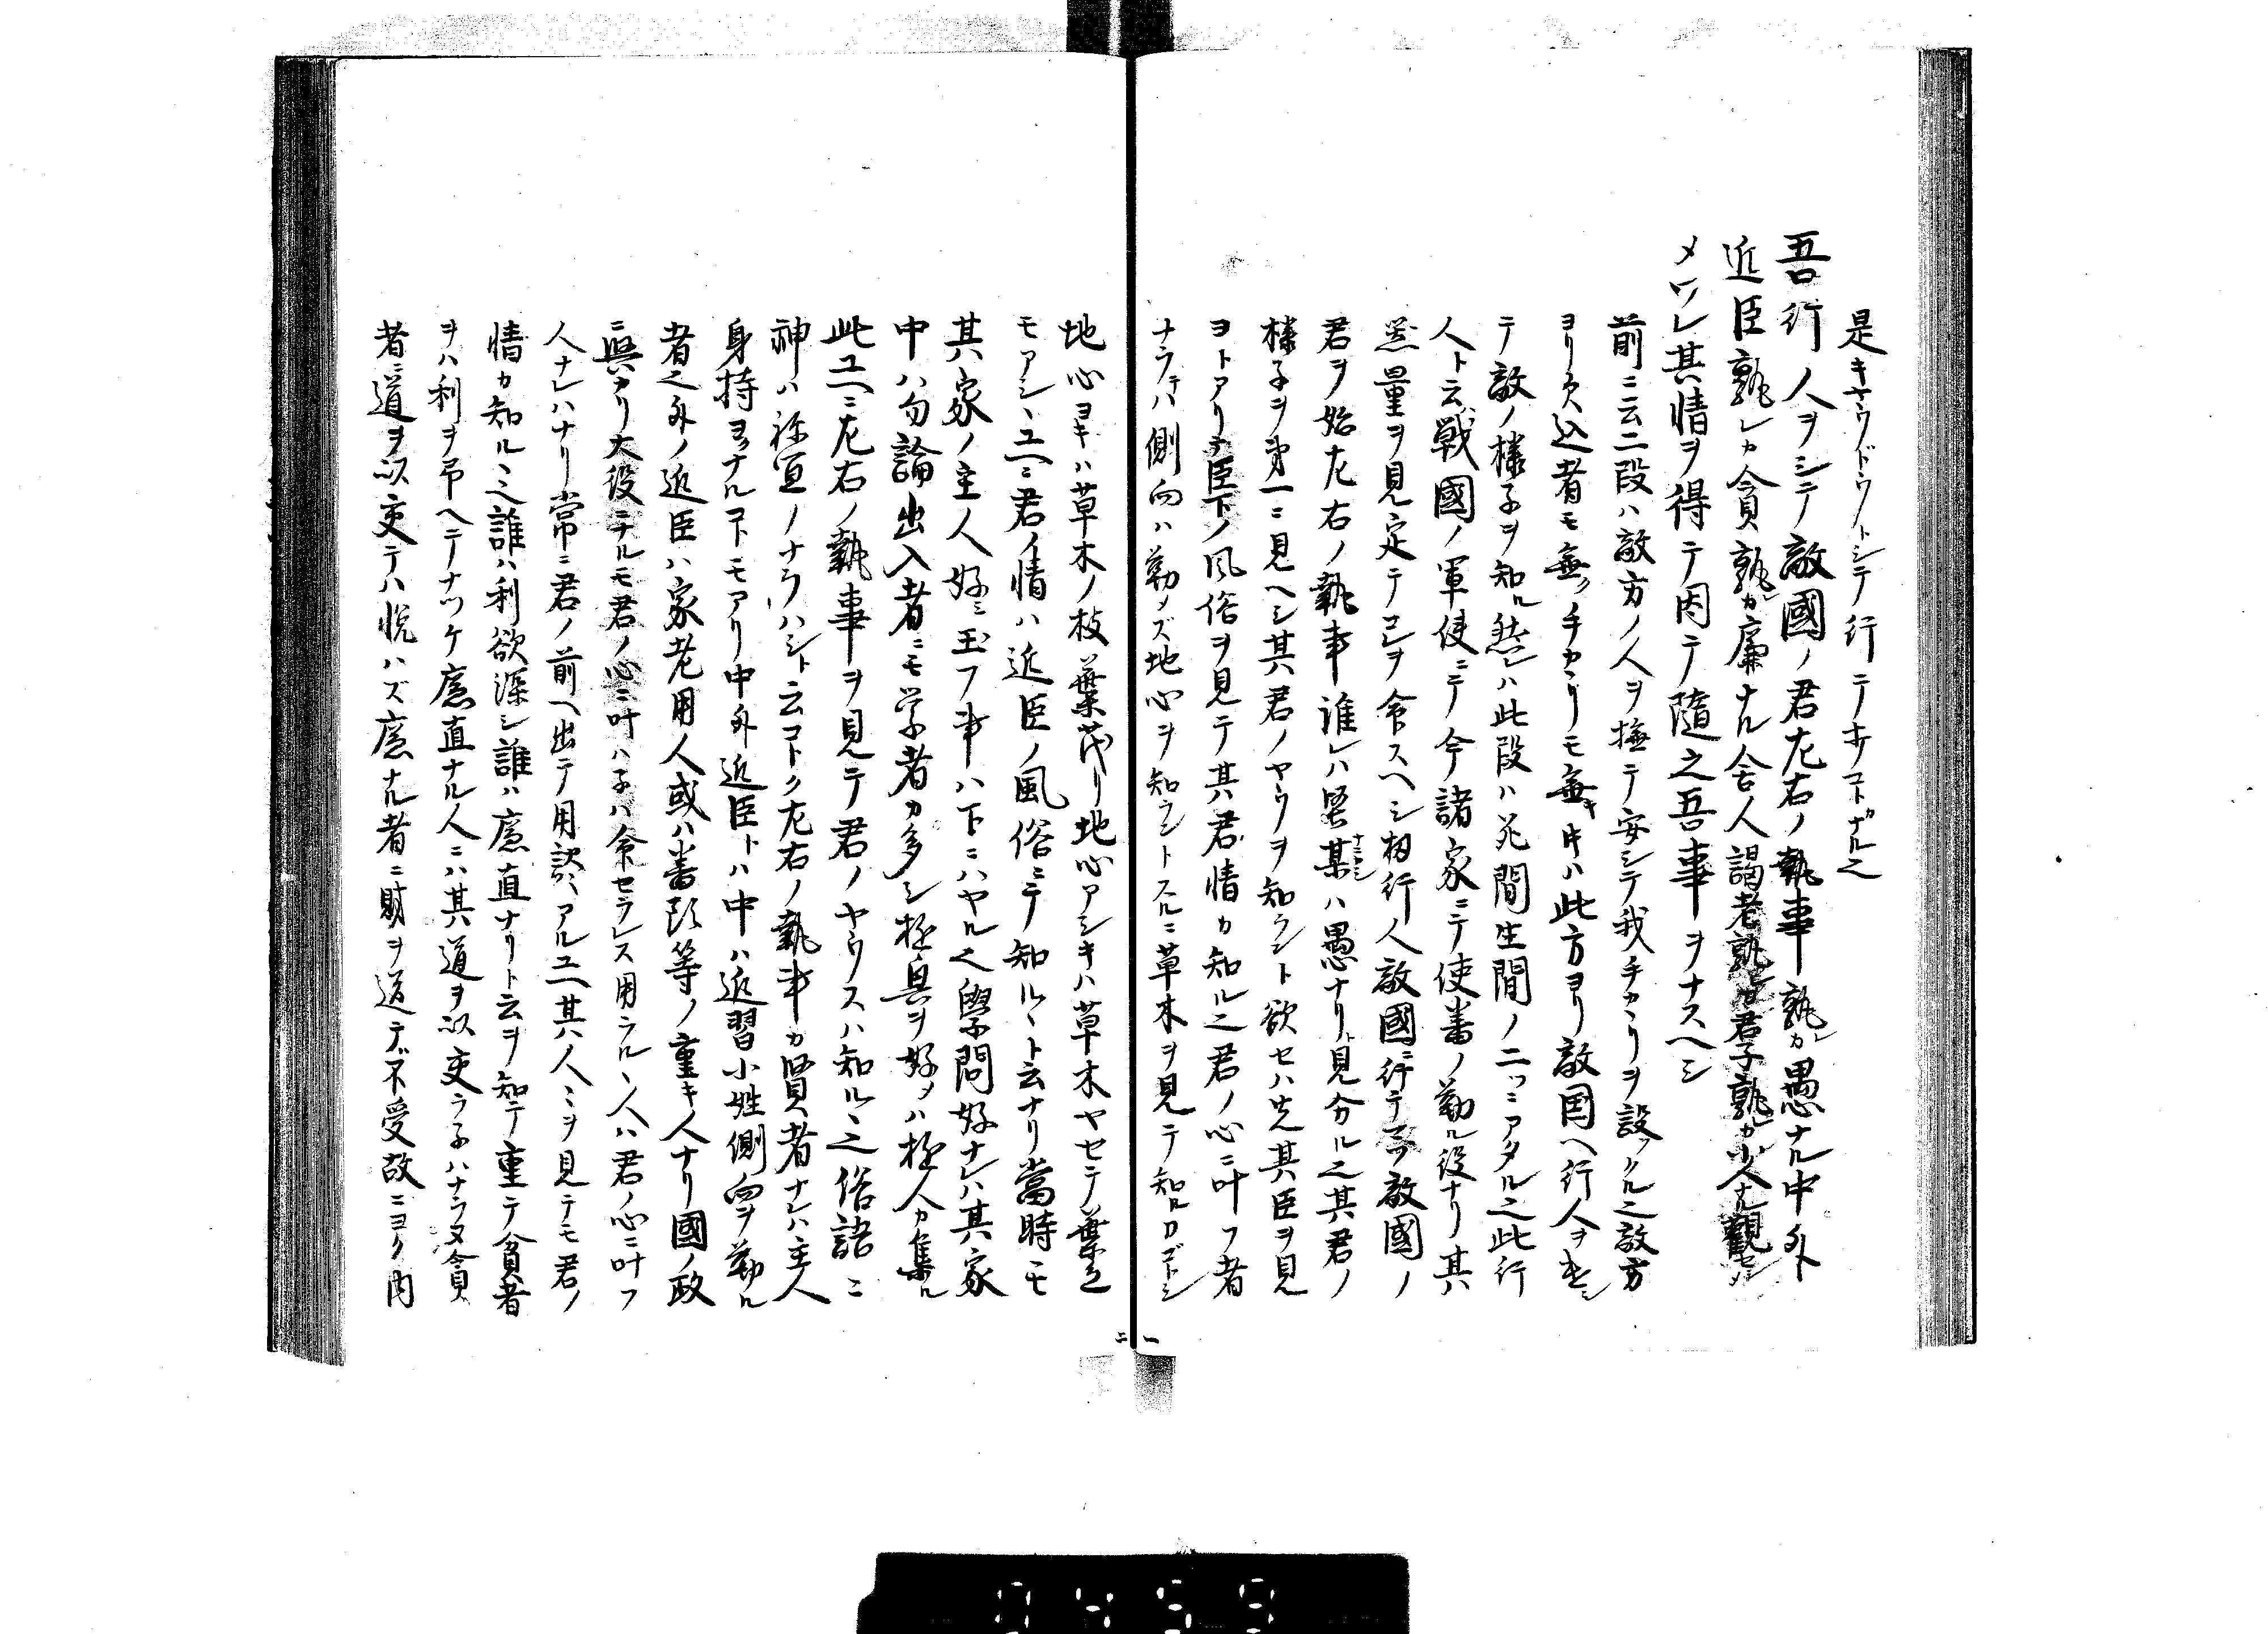 是キヤウドウトシテ行テキコトナル也
吾行人ヲシテ敵國ノ君左右ノ執事孰レカ愚ナル中外
近臣孰レカ貪孰カ廉ナル舎人謁者孰カ君子孰カ小人ナル觀セシ
メツレ其情ヲ得テ因テ隨之吾事ヲナスヘシ
前ニ云二段ハ敵方ノ人ヲ撫テ安シテ我手カヽリヲ設クル之敵方
ヨリ欠込者モ無ク手カヽリモ無キ时ハ此方ヨリ敵国ヘ行人ヲ出シ
テ敵ノ様子ヲ知ル然レハ此段ハ死間生間ノ二ツニアタル之此行
人ト云戰國ノ軍使ニテ今諸家ニテ使番ノ勤ル役ナリ其
器量ヲ見定テコレヲ令スヘシ扨行人敵國ニ行テ敵國ノ
君ヲ始左右ノ執事誰レハ某ハ愚ナリ見分ル之其君ノ
様子ヲ第一ニ見ヘシ其君ノヤウヲ知ラント欲セハ先其臣ヲ見
ヨトアリ臣下ノ風俗ヲ見テ其君情カ知ル之君ノ心ニ叶フ者
ナラテハ側向ハ勤メズ地心ヲ知ラントスルニ草木ヲ見テ知ルカゴトシ
地心ヨキハ草木ノ枝葉茂リ地心アシキハ草木ヤセテ葉之
モアシヽユヘニ君ノ情ハ近臣ノ風俗ニテ知ルヽト云ナリ當時モ
其家ノ主人好ミ玉フ事ハ下ニハヤル之學問好ナレハ其家
中ハ勿論出入者ニモ学者カ多シ極臭ヲ好メハ極人カ集ル
此ユヘニ左右ノ執事ヲ見テ君ノヤウスハ知ルヽ之俗語ニ
神ハ祢宜ノナラハシト云コトク左右ノ執事カ賢者ナレハ主人
身持ヨクナルコトモアリ中外近臣トハ中ハ近習小姓側向ヲ勤ル
者之外ノ近臣ハ家老用人或ハ番頭等ノ重キ人ナリ國ノ政
ニ與カリ大役ニナルモ君ノ心ニ叶ハ子ハ令セラレス用ラルヽ人ハ君ノ心ニ叶フ
人ナレハナリ常ニ君ノ前ヘ出テ用談アルユヘ其人ミヲ見テモ君ノ
情カ知ルヽ之誰ハ利欲深シ誰ハ廉直ナリト云ヲ知テ重テ貪者
ヲハ利ヲ吊ヘテナツケ廉直ナル人ニハ其道ヲ以交ラ子ハナラヌ貪
者ニ道ヲ以交テハ悦ハズ廉ナル者ニ財ヲ送テ不受故ニヨク内
一
二